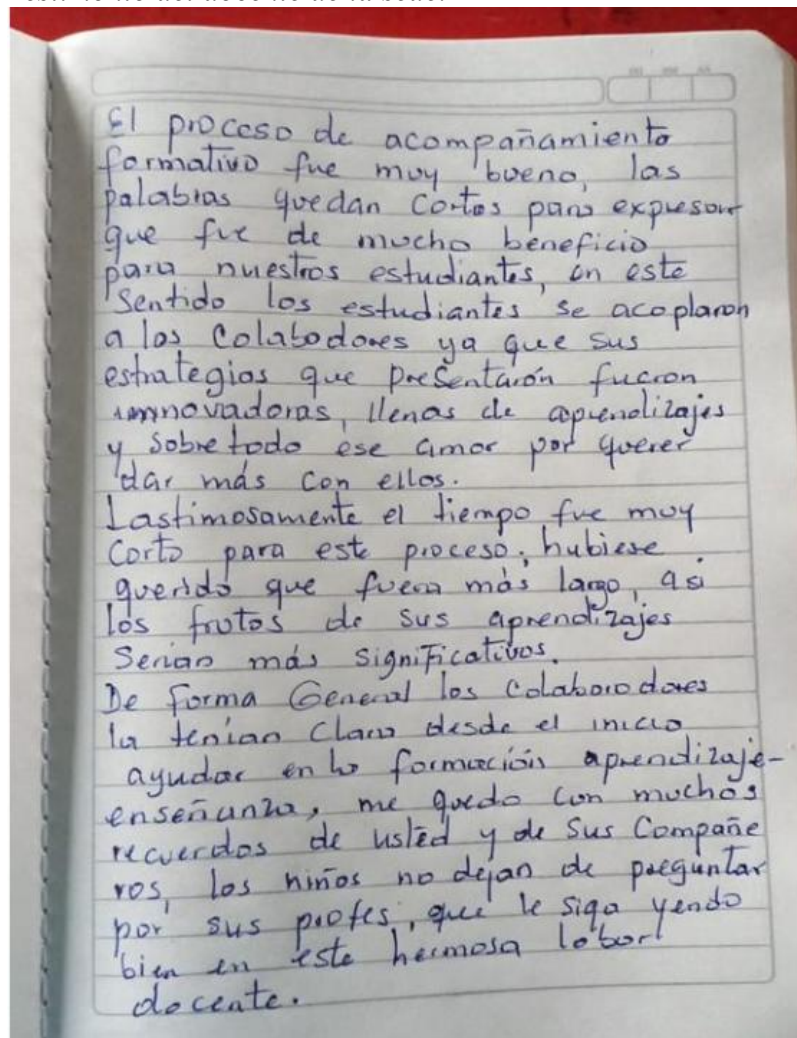 El proceso de acompañamiento
formativo fue muy bueno, las
palabras quedan cortas para expresar
que fue de mucho beneficio
para nuestros estudiantes, en este
sentido los estudiantes se acoplaron
a los Colabodores ya que sus
estrategias que presentarón fueron
innovadoras, llenas de aprendizajes
y sobre todo ese amor por querer
dar más con ellos.
Lastimosamente el tiempo fue muy
Corto para este proceso, hubiese
querido que fuera más largo, asi
los frutos de sus aprendizajes
Serian más significativos.
De forma General los Colaboradores
la tenían Claro desde el inicio
ayudar en la formación aprendizaje-
enseñanza, me quedo con muchos
recuerdos de usted y de sus Compañe
ros, los niños no dejan de preguntar
por sus profes, que le siga yendo
bien en este hermosa labor
docente.